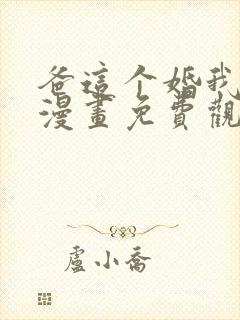 爸這个婚我
漫畫免費觀
盧小喬